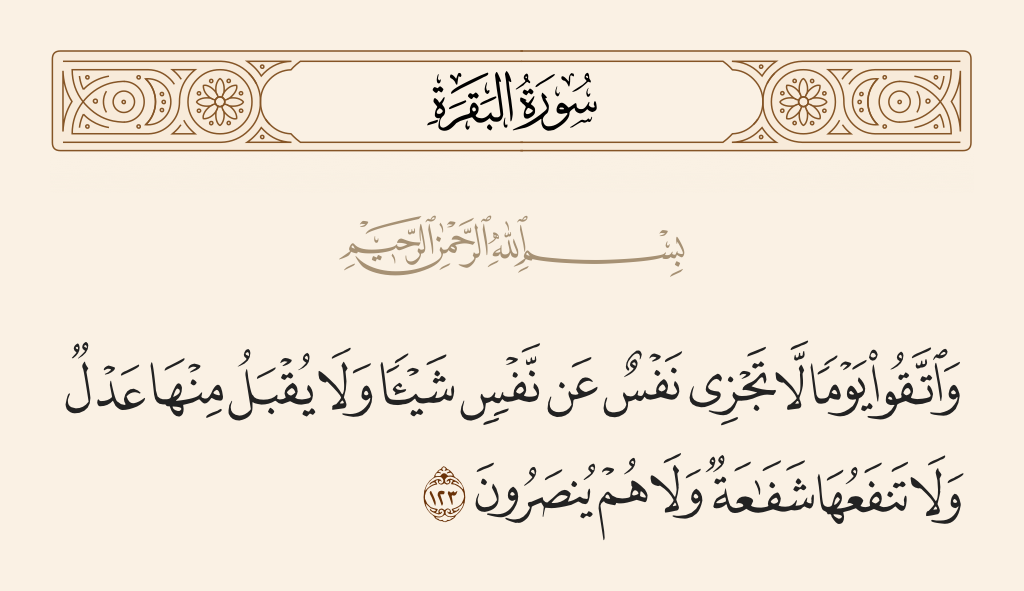 سُورَةُ البَقَرَةِ
بِسْمِ ٱللَّهِ ٱلرَّحْمَٰنِ ٱلرَّحِيمِ
وَٱتَّقُوا۟ يَوْمًا لَّا تَجْزِى نَفْسٌ عَن نَّفْسٍ شَيْـًٔا وَلَا يُقْبَلُ مِنْهَا عَدْلٌ
وَلَا تَنفَعُهَا شَفَـٰعَةٌ وَلَا هُمْ يُنصَرُونَ ١٢٣